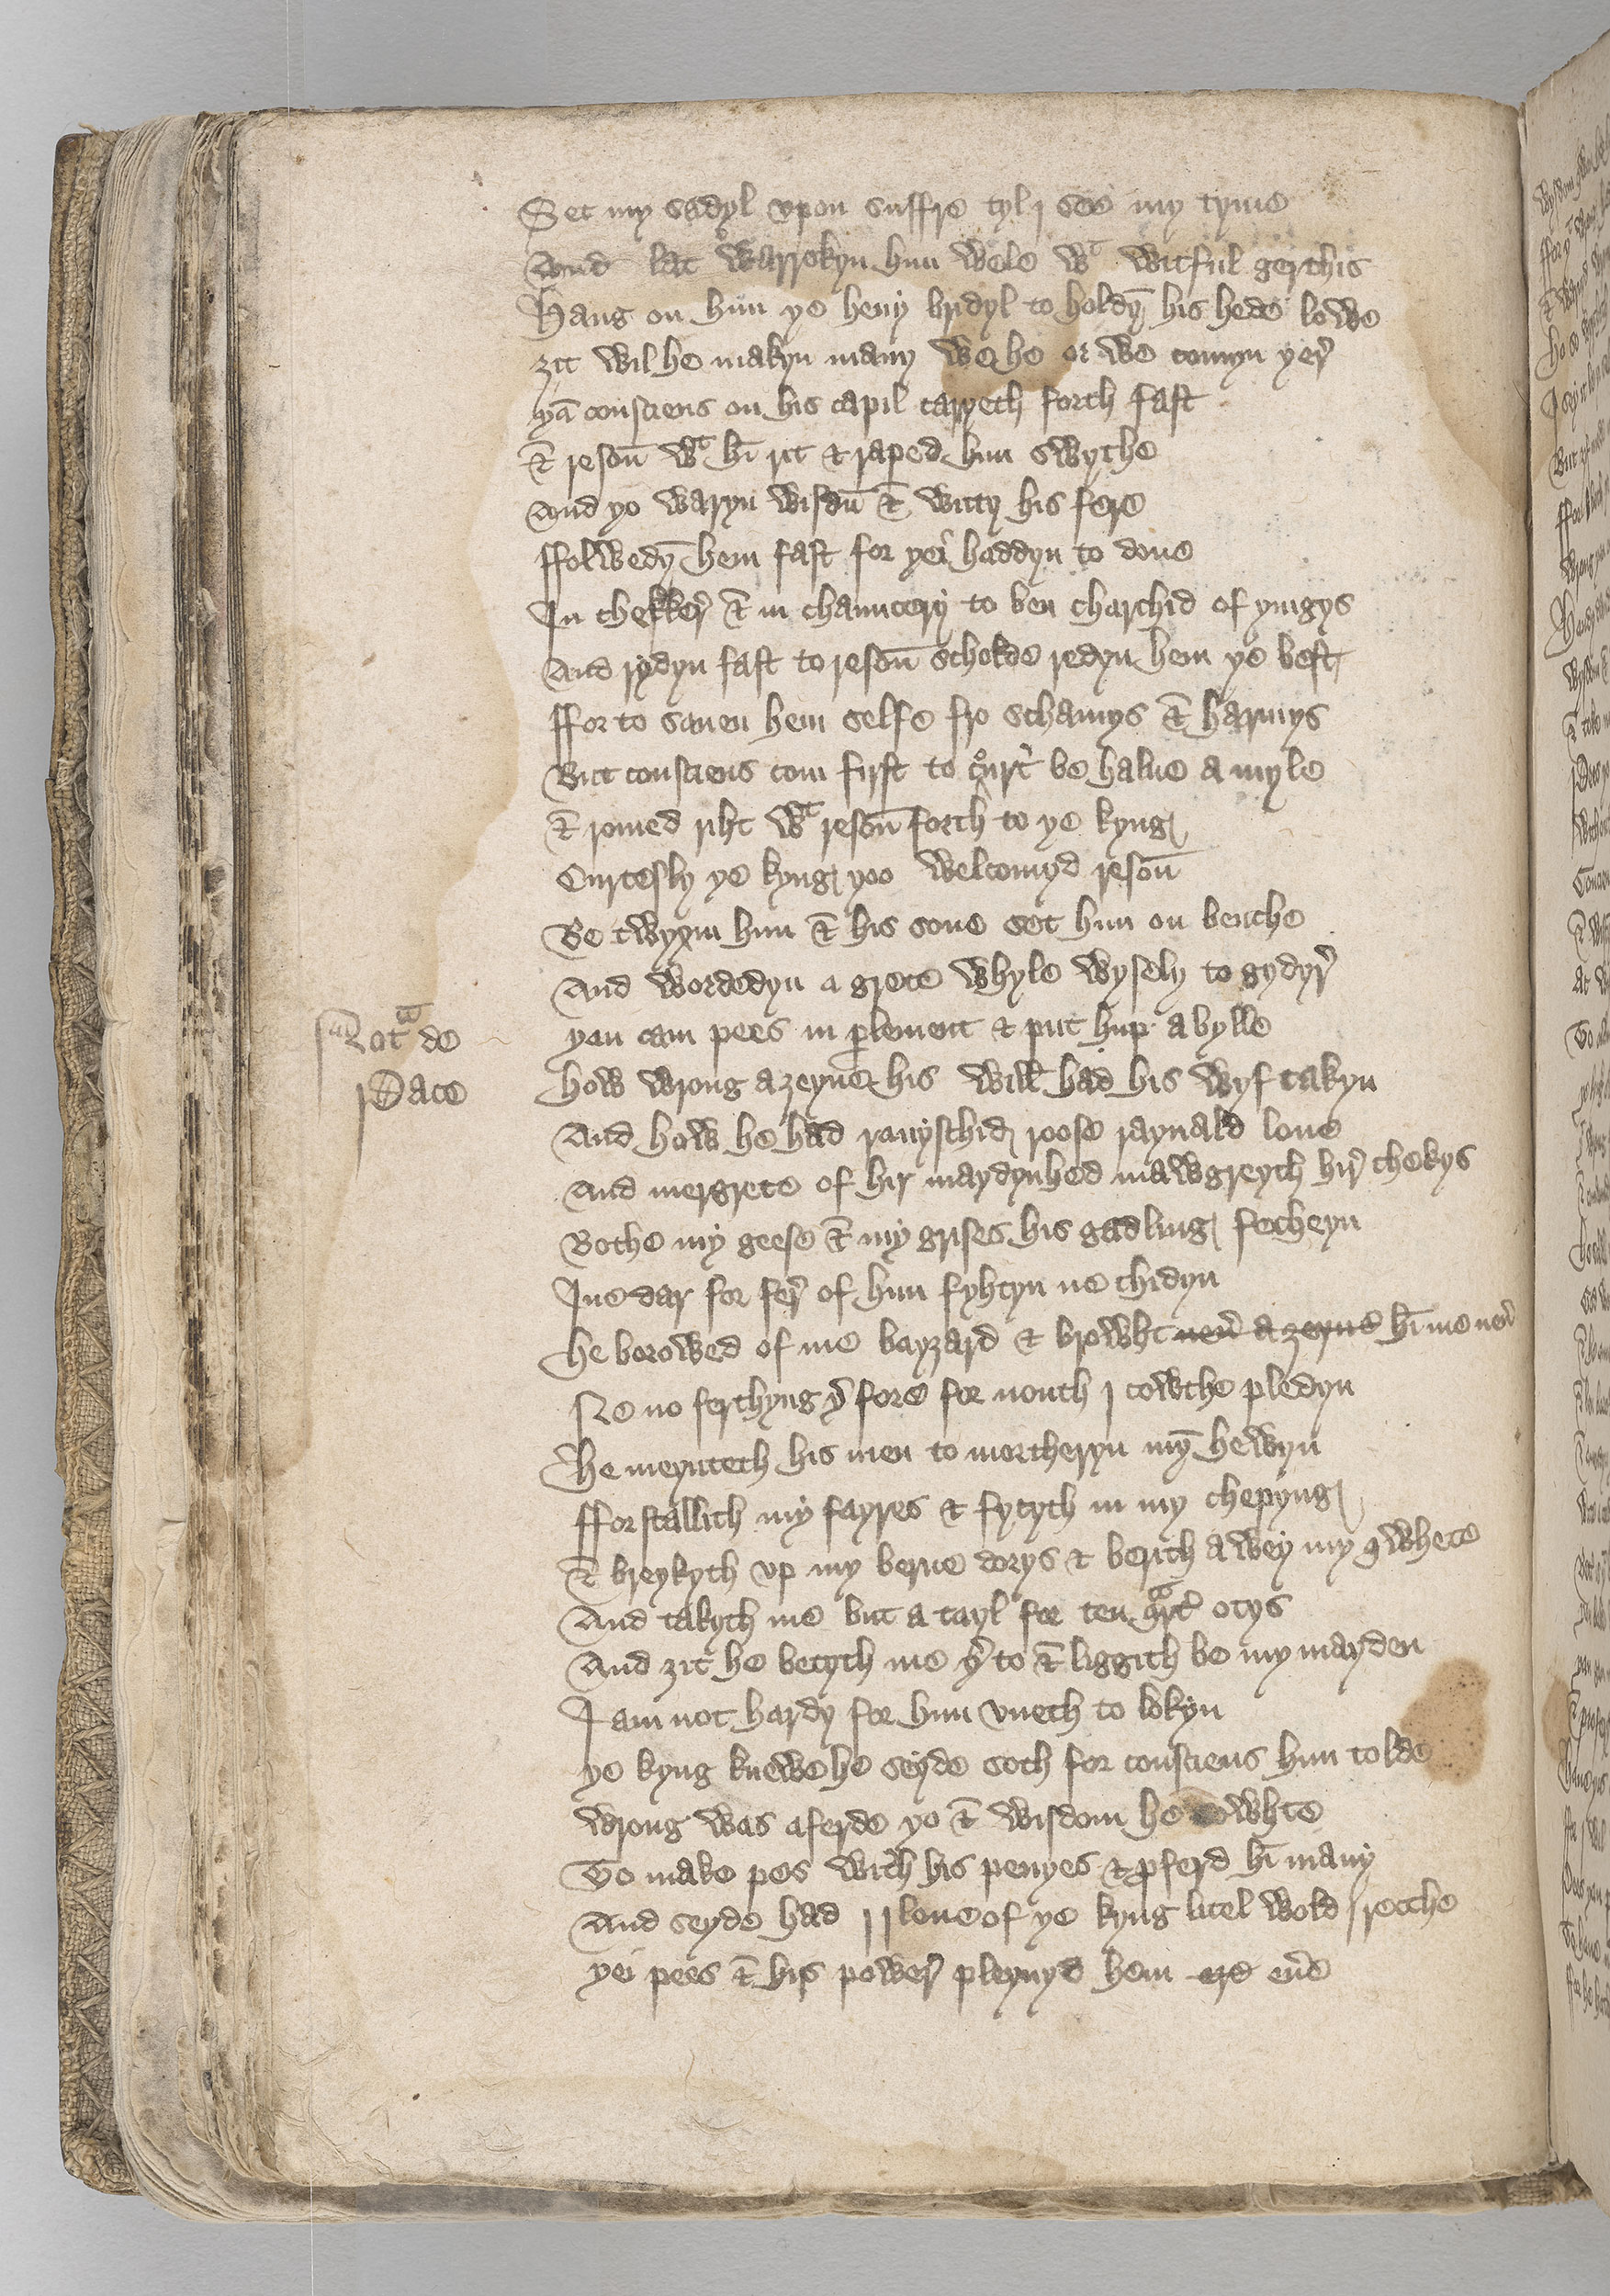 Set my sadyl vpon suffre tyl j see my tyme
And lat warrokyn hym wele wt witful gerthis
Hang on hym ye heuy brydyl to holdyn̄ his hede lowe
ȝit wil he makyn many wehe or we comyn yer̉
yā consciens on his capil caryeth forth fast
& resoū wt hī rit & raped hym swythe
And yo waryn wisdū & witty his fere
ffolwedyn̄ hem fast for yei haddyn to done
In chekker̉ & in chauncery to ben charchid of yingys
And rydyn fast to resoū scholde redyn hem ye best
ffor to sauen hem selfe fro schamys & harmys
But consciens com first to court be halue a myle
& romed riht wt resoū forth to ye kyng
Curtesly ye kyng yoo welcomyd resoū
Be twyxin hym & his sone set hym on benche
And wordedyn a grete whyle wysely to gydyr̉
yan cam pees in plement & put hup a bylle
Nota de
Pace
how wrong a ȝeyne his will had his wyf takyn
And how he had rauyschid roose raynald loue
And mergrete of hir maydynhed mawgreyth hir̉ chekys
Bothe my geese & my grises his gadling fecheyn
I ne dar for fer̉ of hym fyhtyn ne chidyn
he borowed of me bayȝard & browht neủ a ȝeyne hī me neủ
Ne no ferthyng ỷ fore for nouth j cowthe pledyn
he meynteth his men to mortheryn myn̄ hewyn
fforstallith my fayres & fytyth in my chepyng
& breykyth vp my berne dorys & berith a wey my qwhete
And takyth me but a tayl for ten qart̉ otys
And ȝit he betyth me ỷ to & liggith be my mayden
I am not hardy for hym vneth to lokyn
ye kyng knewe he seyde soth for consciens hym tolde
wrong was aferde yo & wisdom he sowhte
To make pes with his penyes & pferd hī many
And seyde had j loue of ye kyng litel wold j recche
yei pees & his power̉ pleynyd hem eủe